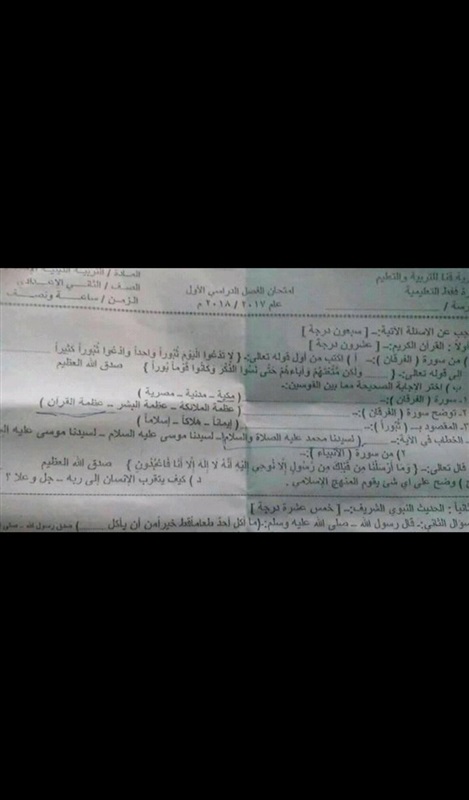 ية قنا للتربية والتعليم
المادة / التربية الدينية
ة قفط التعليمية
امتحان الفصل الدراسي الأول
الصف / الثاني الإعدادى
رسة /
عام ٢٠١٧ / ٢٠١٨ م
الزمن / ساعة ونصف
جب عن الاسئلة الآتية:- [ سبعون درجة ]
أولاً : القرآن الكريم:- [ عشرون درجة ]
) من سورة ( الفرقان ):- أ ) اكتب من أول قوله تعالى:- { لا تدعوا اليوم ثبوراً واحداً وادعوا ثبوراً كثيراً
الى قوله تعالى:- ( ...... ولكن متعتهم وآباءهم حتى نسوا الذكر وكانوا قوماً بوراً } صدق الله العظيم
ب ) اختر الإجابة الصحيحة مما بين القوسين:-
١- سورة ( الفرقان ):- ( مكية – مدنية – مصرية )
٢- توضح سورة ( الفرقان ):- ( عظمة الملائكة – عظمة البشر – عظمة القرآن )
٣- المقصود بـ ( ثبوراً ):- ( إيماناً – هلاكاً – إسلاماً )
الخطاب في الآية:- ( لسيدنا محمد عليه الصلاة والسلام – لسيدنا موسى عليه السلام – لسيدنا
٢ ) من سورة ( الأنبياء ):-
قال تعالى:- { وما أرسلنا من قبلك من رسول إلا نوحي إليه أنه لا إله إلا أنا فاعبدون } صدق الله العظيم
ج ) وضح على أي شئ يقوم المنهج الإسلامي . د ) كيف يتقرب الإنسان إلى ربه – جل وعلا ؟
ثانياً : الحديث النبوي الشريف:- [ خمس عشرة درجة ]
سؤال الثاني:- قال رسول الله – صلى الله عليه وسلم:-(ما أكل أحدٌ طعاماً قط خيراً من أن يأكل ) صدق رسول الله